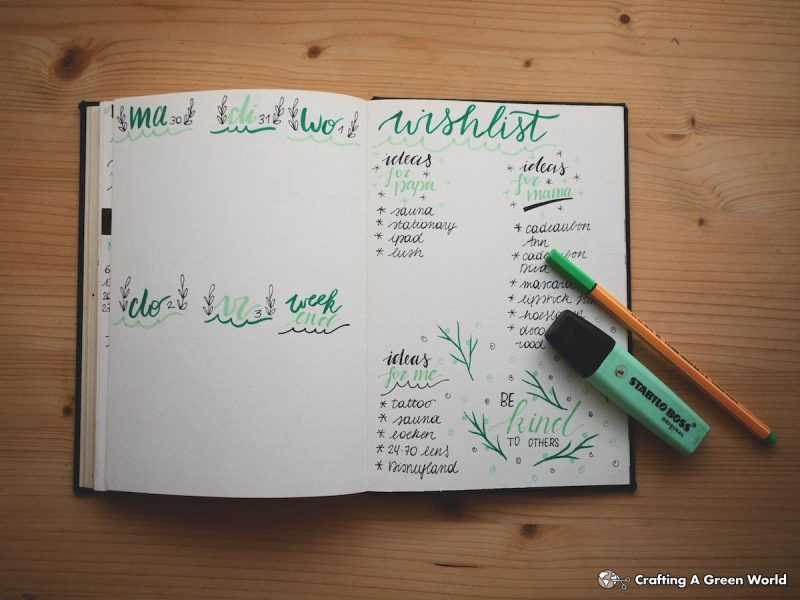 ma 30
di 31
wo 1
do 2
vr 3
week
end
wishlist
ideas
for
papa
* sauna
* stationary
* ipad
* lush
ideas
for
mama
* cadeaubon
Ann
*
* mascara
* lipstick
*
*
ideas
for me
* tattoo
* sauna
* boeken
* 24-70 lens
* Disneyland
BE
kind
TO OTHERS
STABILO BOSS
ORIGINAL
Crafting A Green World